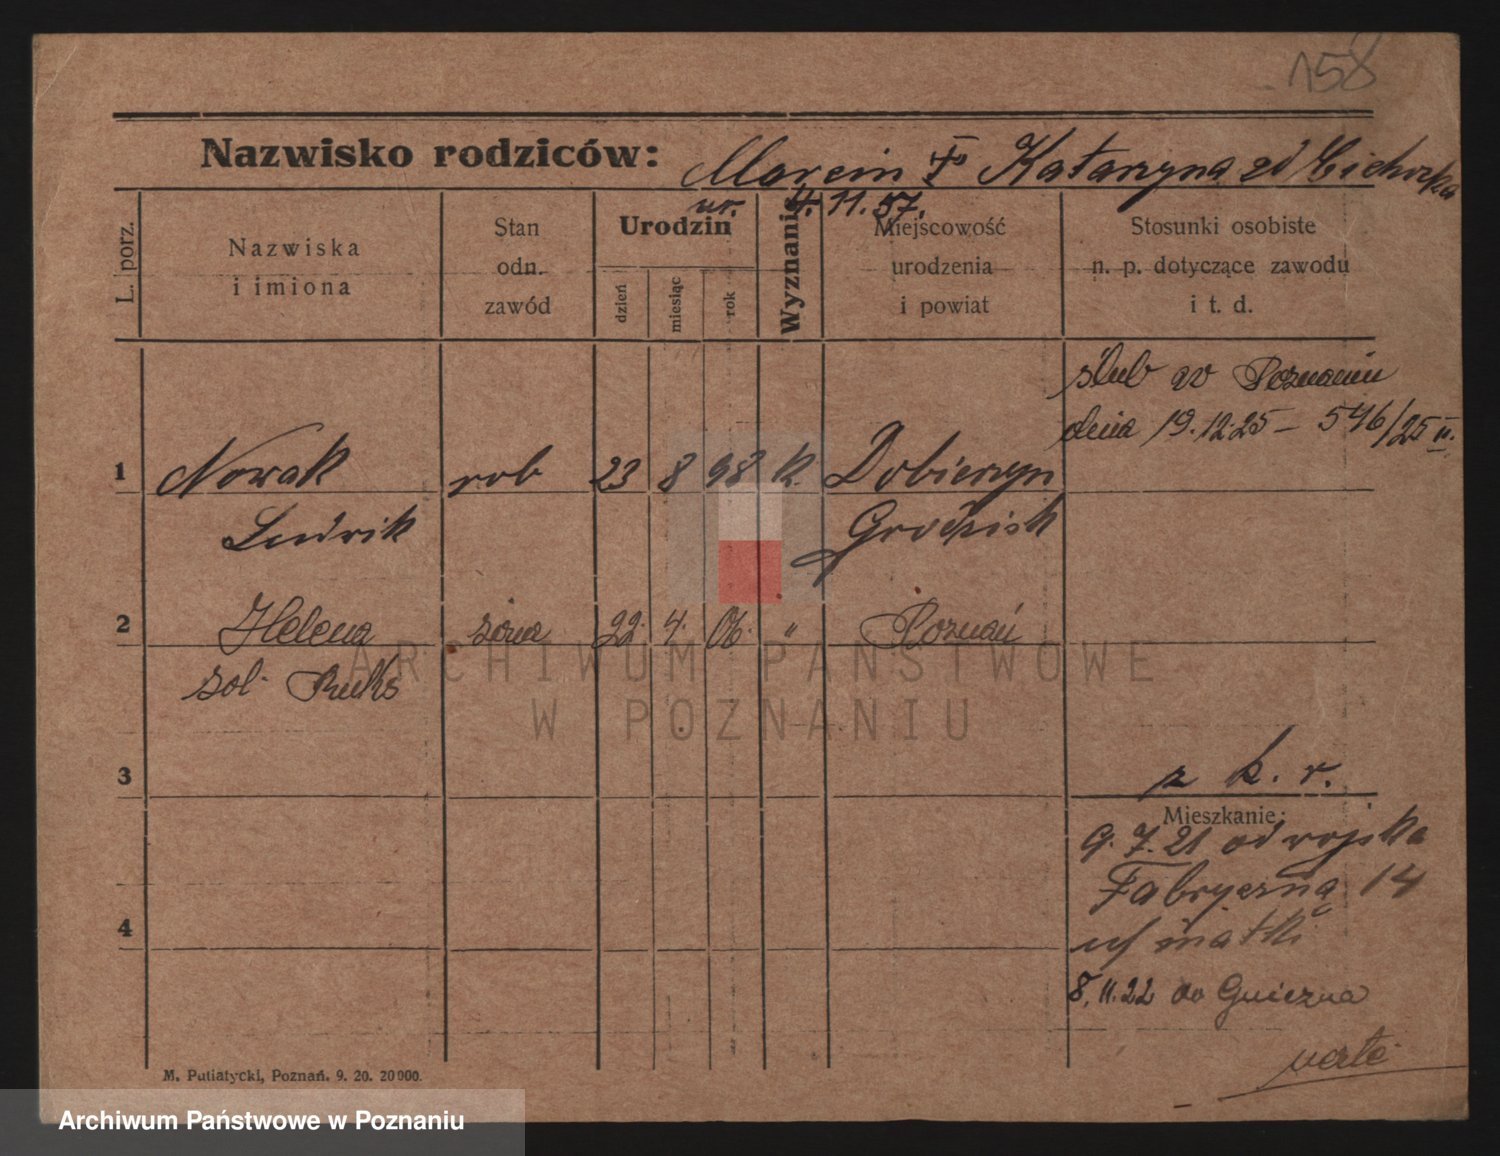 158
Nazwisko rodziców: Marcin † Katarzyna zd Cichocka
ur. 4. 11. 57.
L. porz.
Nazwiska
i imiona
Stan
odn.
zawód
Urodzin
dzień
miesiąc
rok
Wyznanie
Miejscowość
urodzenia
i powiat
Stosunki osobiste
n. p. dotyczące zawodu
i t. d.
ślub w Poznaniu
dnia 19.12.25 – 546/25 II.
1 Nowak rob 23 8 98 k. Dobieżyn
Ludwik Grodzisk
2 Helena żona 22. 4. 06. " Poznań
zol.
3
z k. r.
Mieszkanie:
9. 7. 21 od wojska
Fabryczna 14
4
u/ matki
8. 11. 22 do Gniezna
verte
M. Putiatycki, Poznań. 9. 20. 20000.
ARCHIWUM PAŃSTWOWE
W POZNANIU
Archiwum Państwowe w Poznaniu